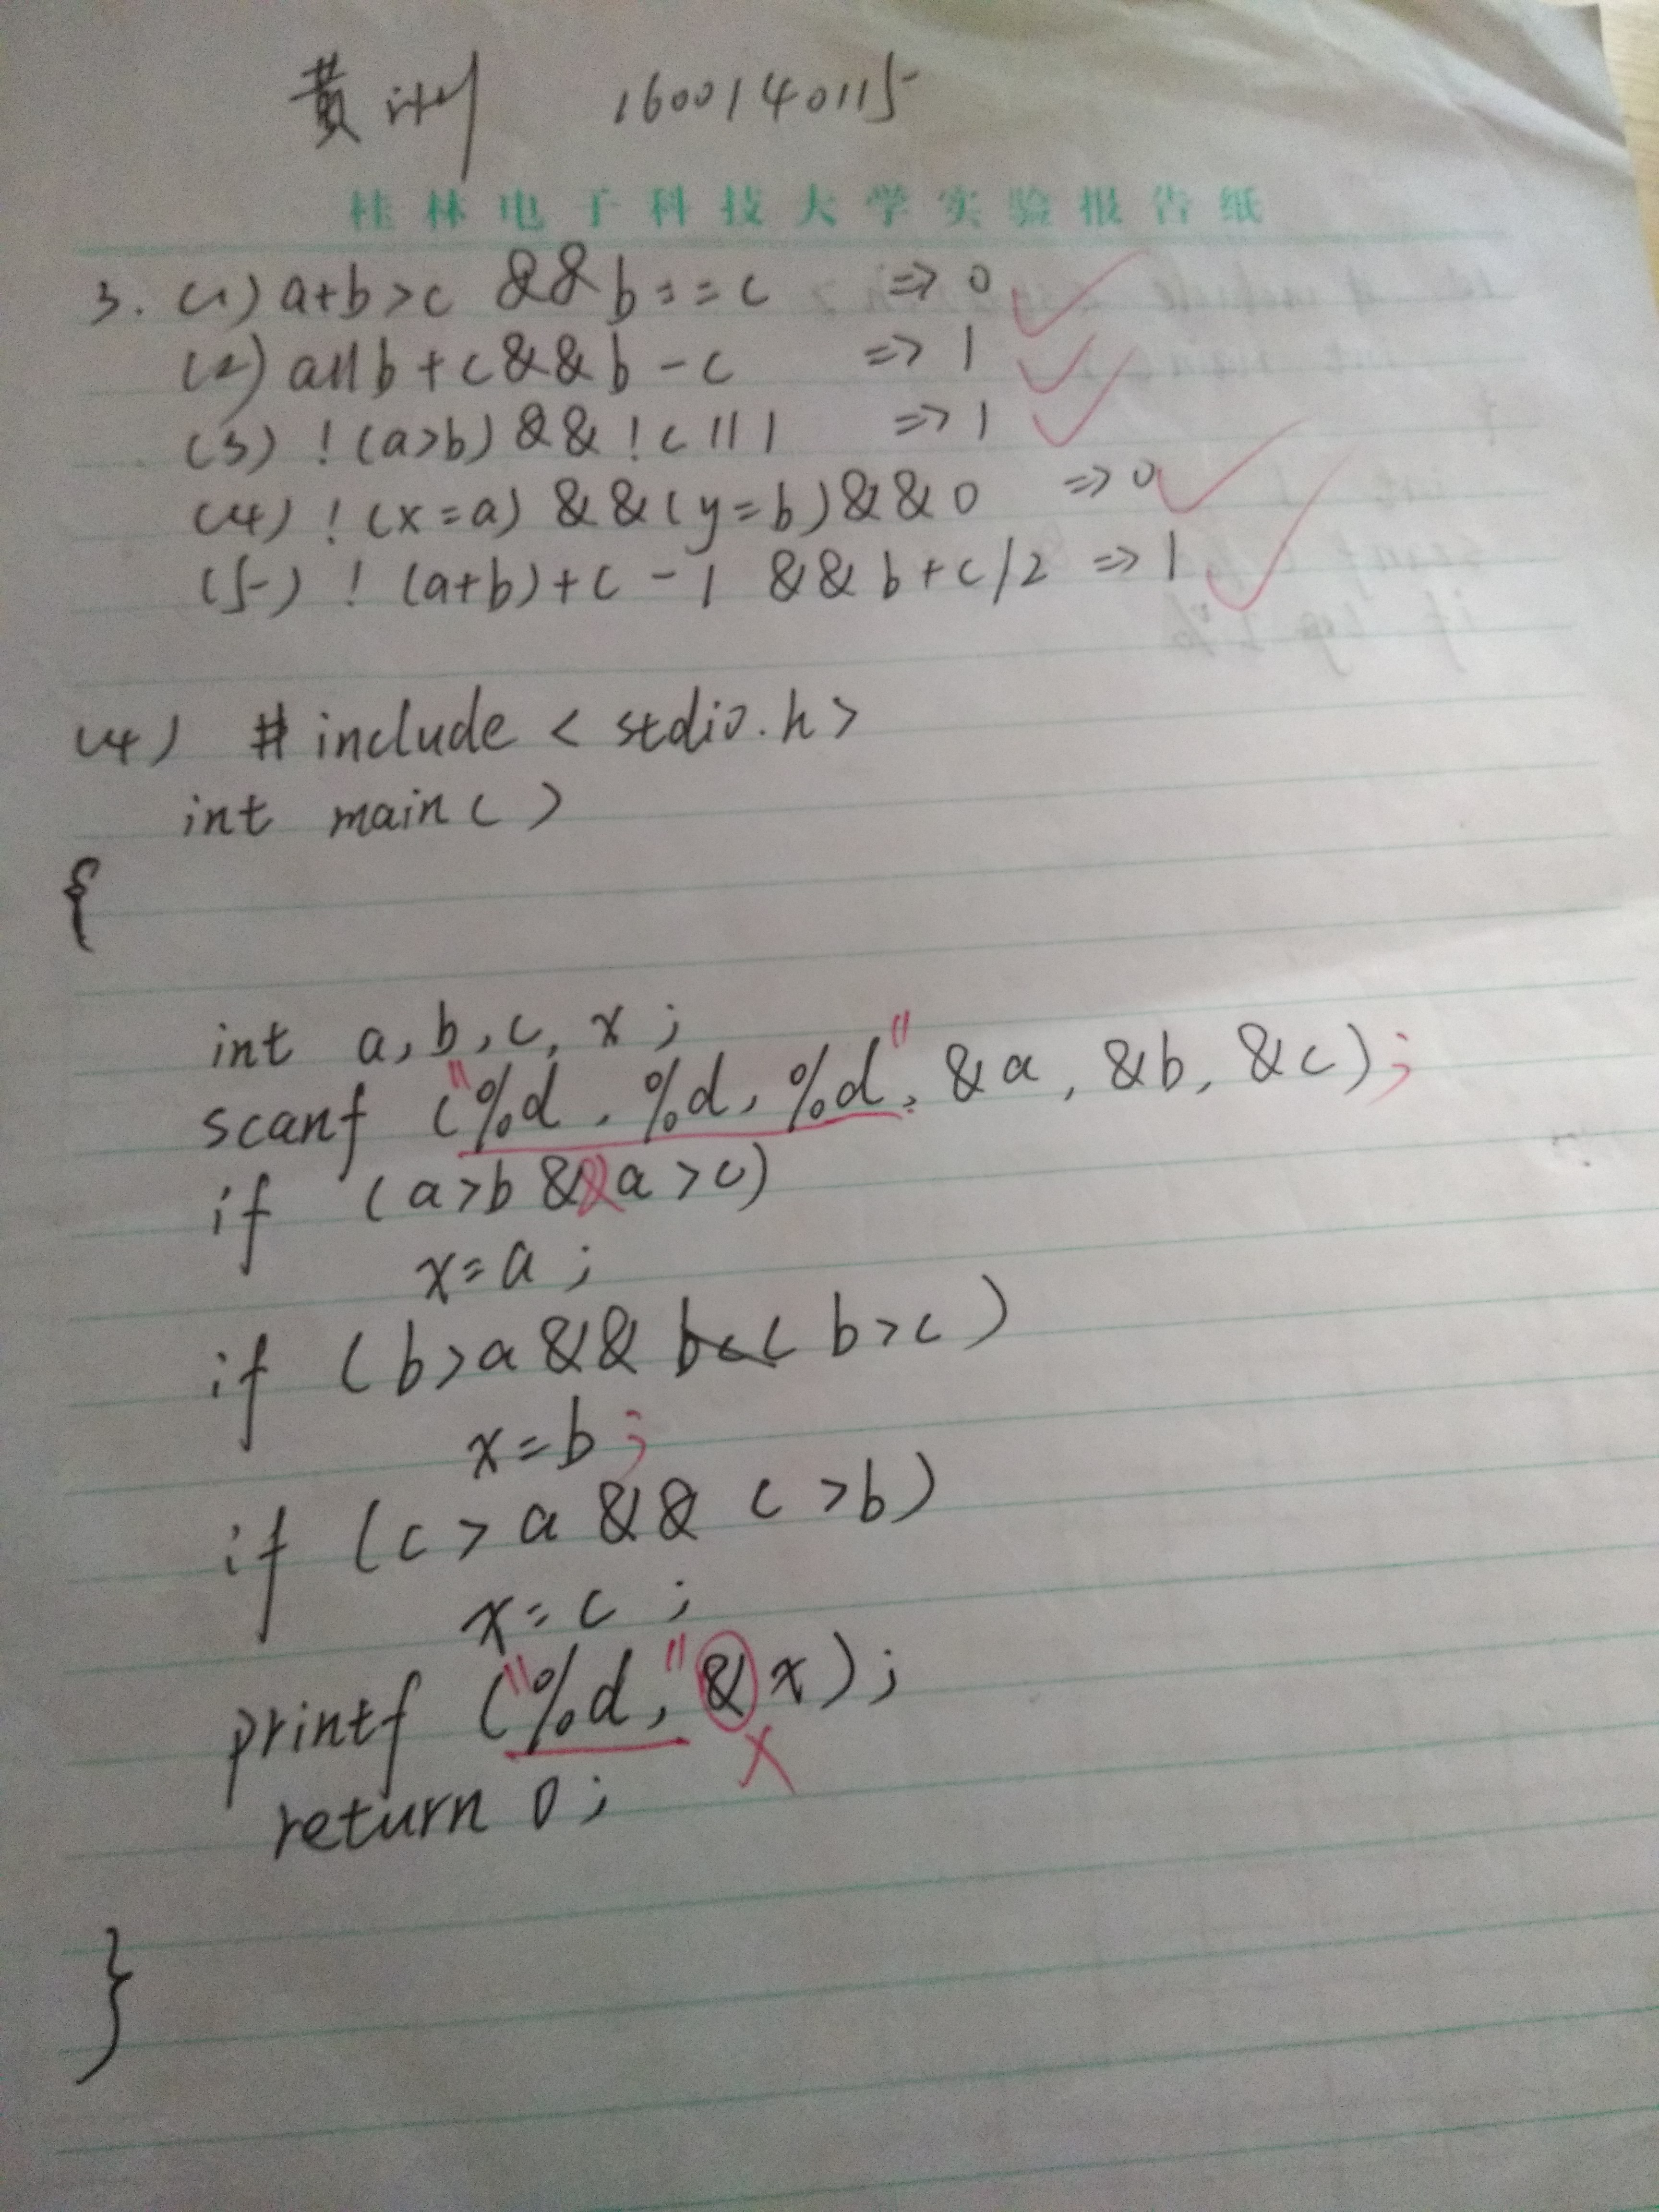 黄 1600140115
桂林电子科技大学实验报告纸
3. (1) a+b>c &&b==c => 0
(2) a||b+c&&b-c => 1
(3) !(a>b)&&!c||1 => 1
(4) !(x=a)&&(y=b)&&0 => 0
(5) !(a+b)+c-1 &&b+c/2 => 1
(4) #include <stdio.h>
int main()
{
int a,b,c,x;
scanf ("%d,%d,%d", &a, &b, &c);
if (a>b &&a>c)
x=a;
if (b>a&& b>c)
x=b;
if (c>a && c>b)
x=c;
printf ("%d," &x);
return 0;
}